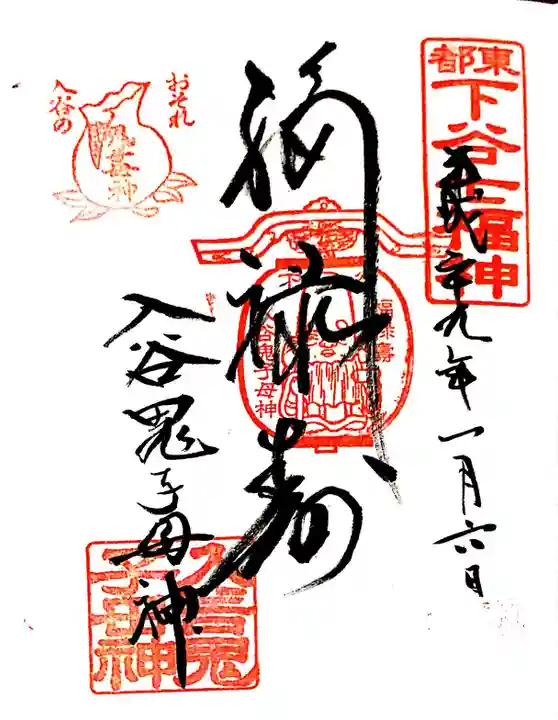 東都
下谷七福神
平成廿九年一月六日
福禄寿
福禄壽
入谷鬼子母神
入谷鬼子母神
おそれ
入谷の
鬼子母神
入谷鬼子母神